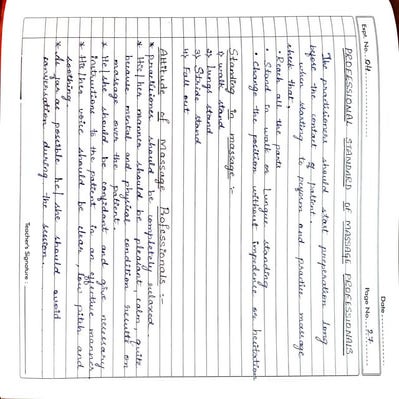 Expt. No. 04
Date
Page No. 27
PROFESSIONAL STANDARD OF MASSAGE PROFESSIONALS
The practisioners should start preperation long
before the contact of patient.
when starting to perform and practice massage
check that:
• Reach all the parts
• Stand in walk or lungue standing
• Change the position without impedence or hesitation
Standing in massage :-
1) walk stand
2) lungs stand
3) Stride stand
4) Fall out
Attitude of Massage Professionals :-
* Practitioner should be completely relaxed.
* His/her manner should be pleasant, calm, quite
because mental and physical condition results on
massage over the patient.
* He/she should be confident and give necessary
instructions to the patient in an effective manner
* His/her voice should be clear, low pitch and
soothing.
* As far as possible he/she should avoid
conversation during the session.
Teacher's Signature :